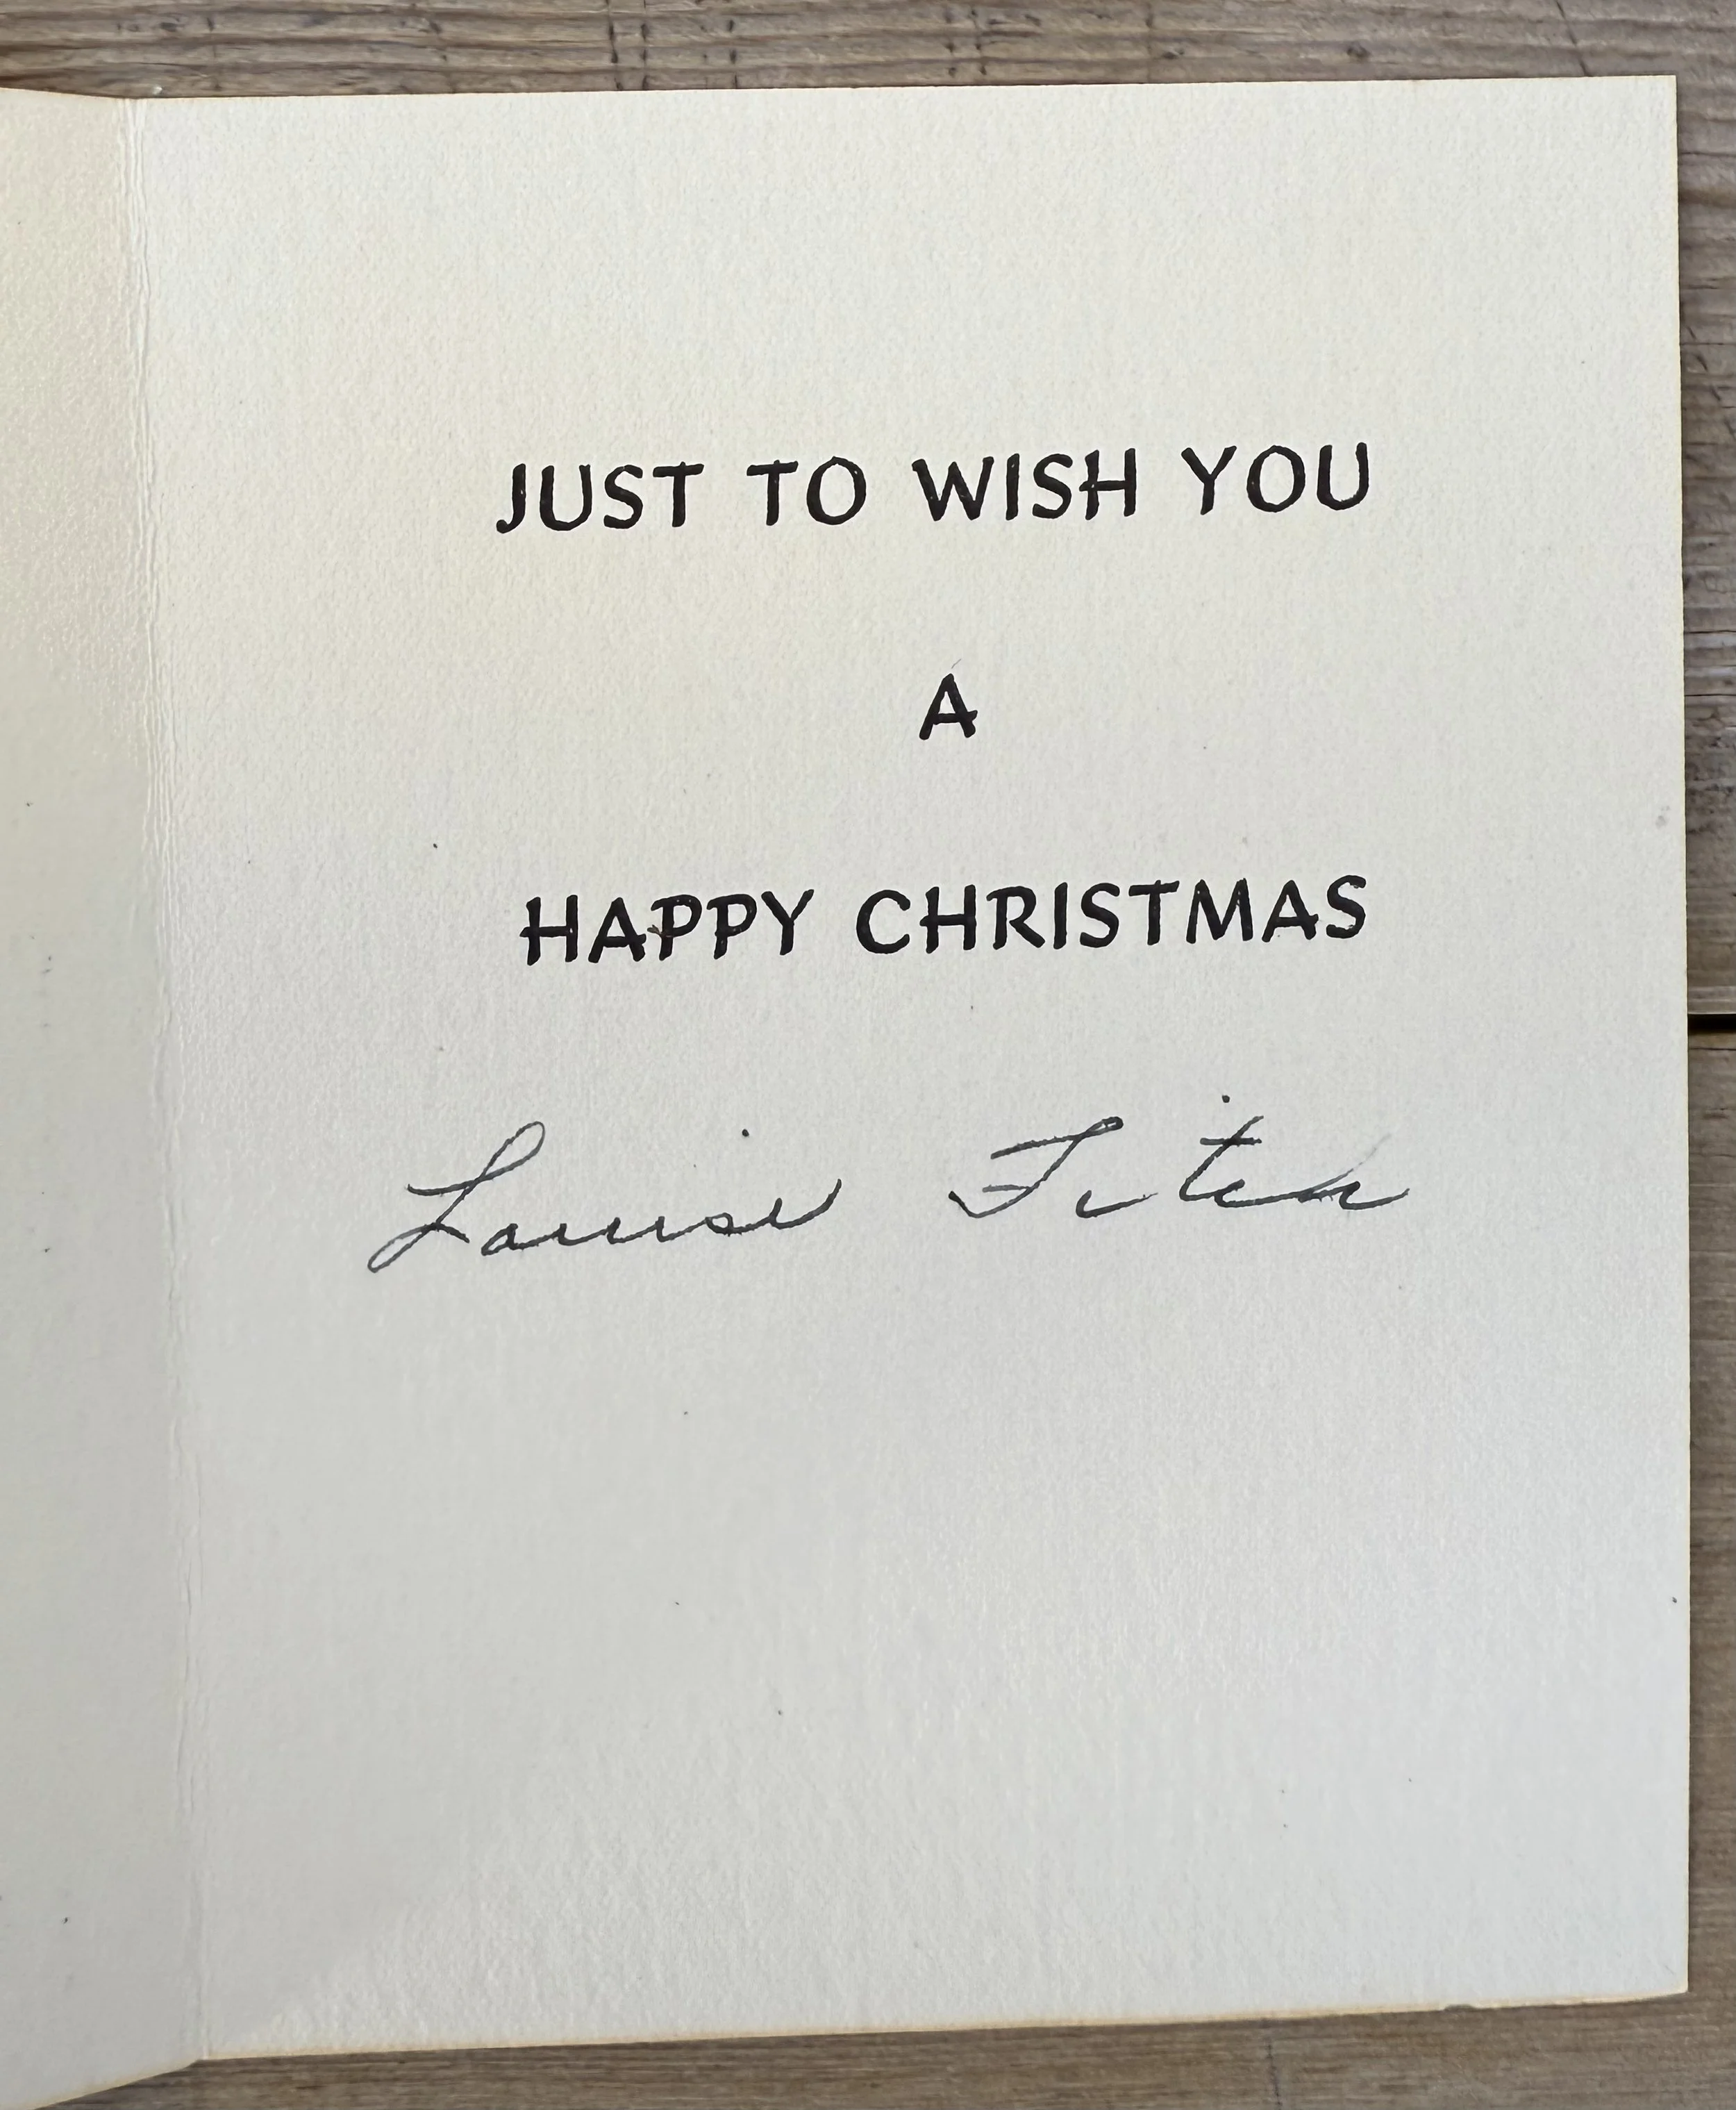 JUST TO WISH YOU
A
HAPPY CHRISTMAS
Louise Fitch